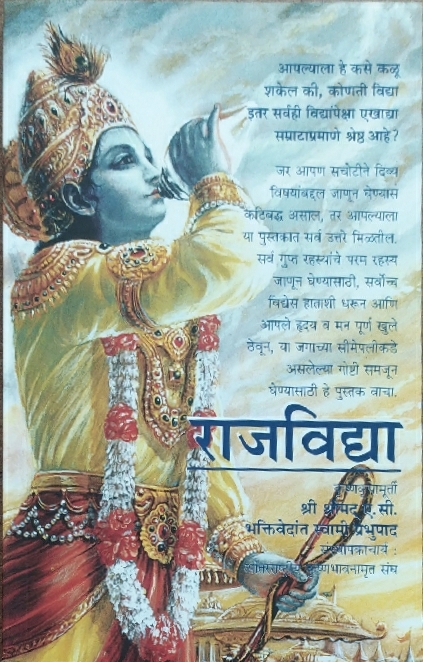 आपल्याला हे कसे कळू
शकेल की, कोणती विद्या
इतर सर्वही विद्यांपेक्षा एखाद्या
सम्राटाप्रमाणे श्रेष्ठ आहे?
जर आपण सचोटीने दिव्य
विषयांबद्दल जाणून घेण्यास
कटिबद्ध असाल, तर आपल्याला
या पुस्तकात सर्व उत्तरे मिळतील.
सर्व गुप्त रहस्यांचे परम रहस्य
जाणून घेण्यासाठी, सर्वोच्च
विद्येस हाताशी धरून आणि
आपले हृदय व मन पूर्ण खुले
ठेवून, या जगाच्या सीमेपलीकडे
असलेल्या गोष्टी समजून
घेण्यासाठी हे पुस्तक वाचा.
राजविद्या
कृष्णकृपामूर्ती
श्री श्रीमद् ए. सी.
भक्तिवेदांत स्वामी प्रभुपाद
संस्थापकाचार्य :
आंतरराष्ट्रीय कृष्णभावनामृत संघ